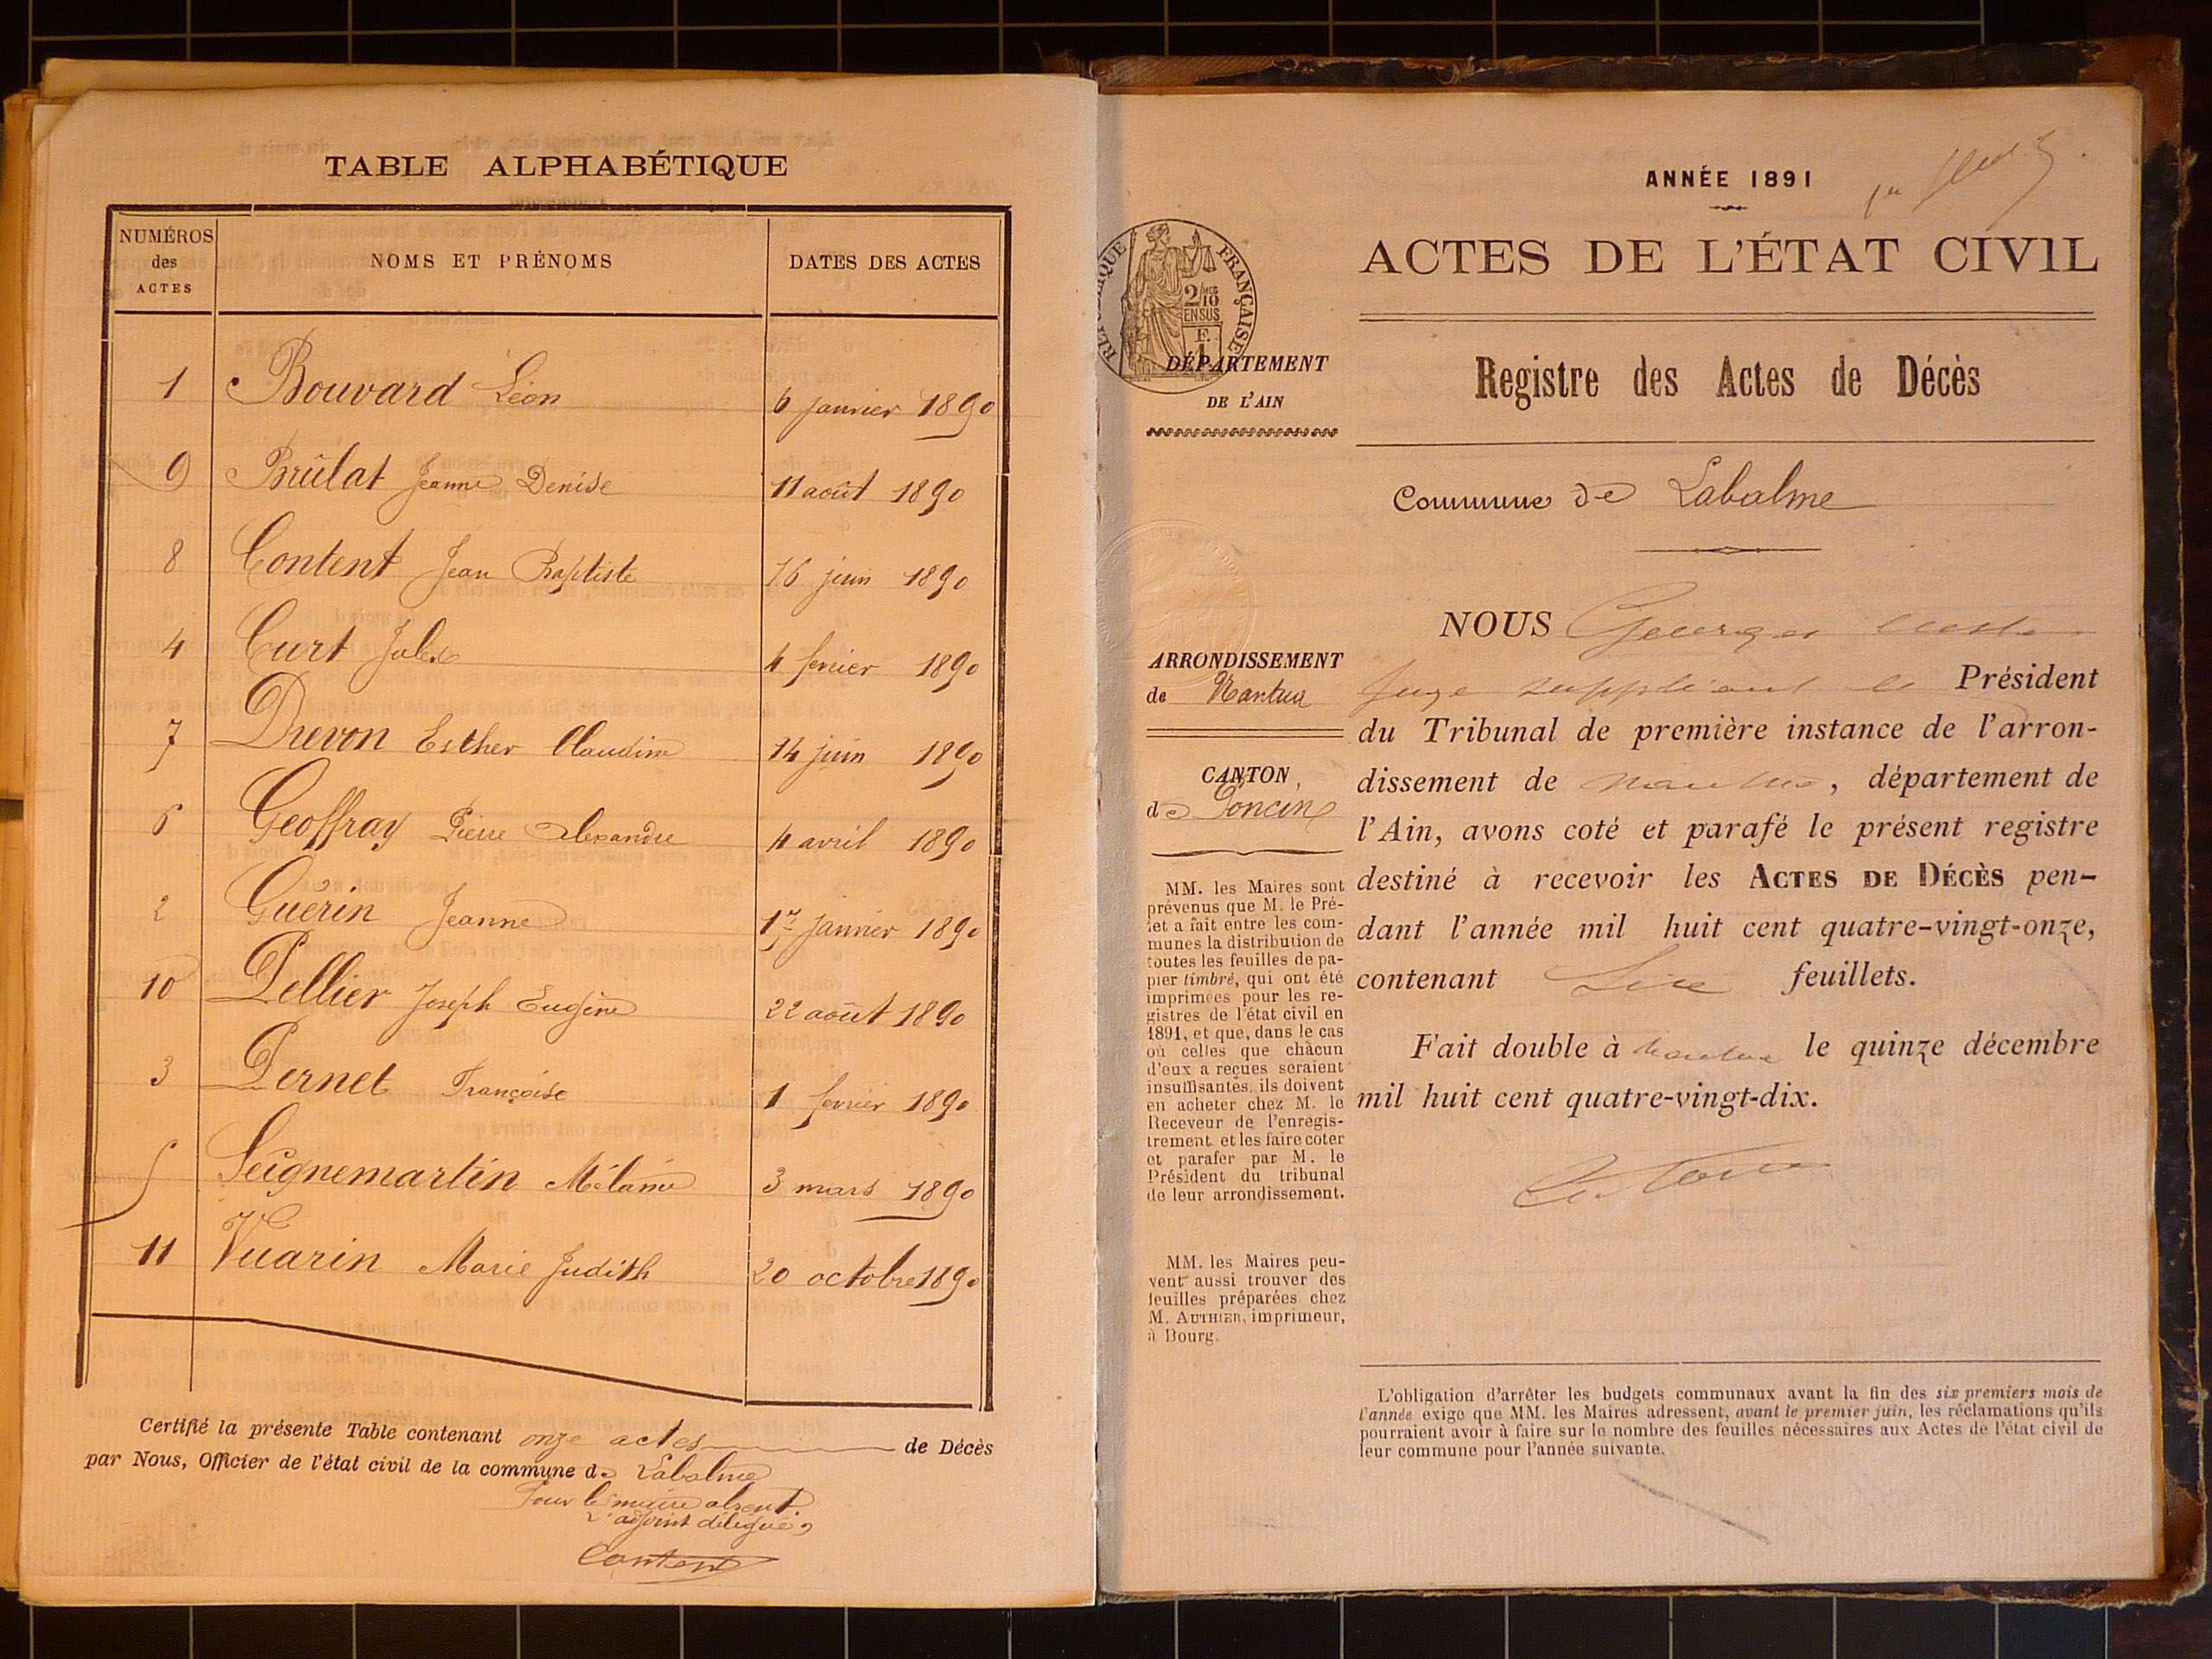 TABLE ALPHABÉTIQUE
NUMÉROS des ACTES NOMS ET PRÉNOMS DATES DES ACTES
1 Bouvard Léon 6 janvier 1890
9 Brûlat Jeanne Denise 11 août 1890
8 Content Jean Baptiste 16 juin 1890
4 Curt Jules 4 fevrier 1890
7 Drevon Esther Claudine 14 juin 1890
6 Geoffray Pierre Alexandre 4 avril 1890
2 Guérin Jeanne 17 janvier 1890
10 Pellier Joseph Eugène 22 août 1890
3 Pernet Françoise 1 fevrier 1890
5 Seignemartin Mélanie 3 mars 1890
11 Vuarin Marie Judith 20 octobre 1890
Certifié la présente Table contenant onze actes de Décès
par Nous, Officier de l'état civil de la commune de Labalme
Pour le maire absent
L'adjoint délégué,
Content
ANNÉE 1891
ACTES DE L'ÉTAT CIVIL
RÉPUBLIQUE FRANÇAISE
2/10
EN SUS
DÉPARTEMENT
DE L'AIN
Registre des Actes de Décès
Commune de Labalme
ARRONDISSEMENT
de Nantua
CANTON
de Poncin
MM. les Maires sont
prévenus que M. le Pré-
fet a fait entre les com-
munes la distribution de
toutes les feuilles de pa-
pier timbré, qui ont été
imprimées pour les re-
gistres de l'état civil en
1891, et que, dans le cas
où celles que chacun
d'eux a reçues seraient
insuffisantes, ils doivent
en acheter chez M. le
Receveur de l'enregis-
trement et les faire coter
et parafer par M. le
Président du tribunal
de leur arrondissement.
MM. les Maires peu-
vent aussi trouver des
feuilles préparées chez
M. AUTHIER, imprimeur,
à Bourg.
NOUS Georges
Juge suppléant Président
du Tribunal de première instance de l'arron-
dissement de Nantua, département de
l'Ain, avons coté et parafé le présent registre
destiné à recevoir les ACTES DE DÉCÈS pen-
dant l'année mil huit cent quatre-vingt-onze,
contenant feuillets.
Fait double à Nantua le quinze décembre
mil huit cent quatre-vingt-dix.
L'obligation d'arrêter les budgets communaux avant la fin des six premiers mois de
l'année exige que MM. les Maires adressent, avant le premier juin, les réclamations qu'ils
pourraient avoir à faire sur le nombre des feuilles nécessaires aux Actes de l'état civil de
leur commune pour l'année suivante.